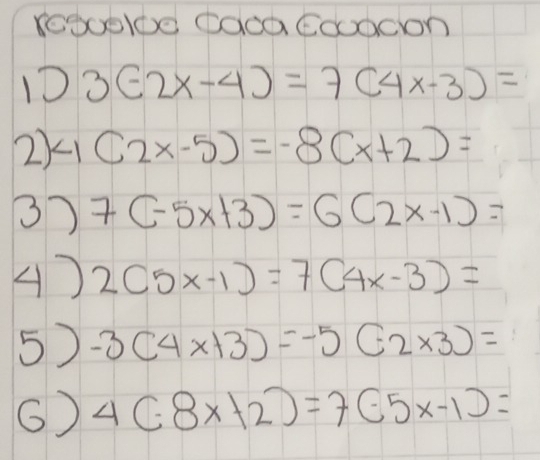 resuelve cada Ecuacion
1) 3(-2x-4) = 7(4x-3) =
2) <1 (2x-5) = -8(x+2) =
3) 7(-5x+3) = 6(2x-1) =
4) 2(5x-1) = 7(4x-3) =
5) -3(4x+3) = -5(-2x3) =
6) 4(-8x+2) = 7(-5x-1) =